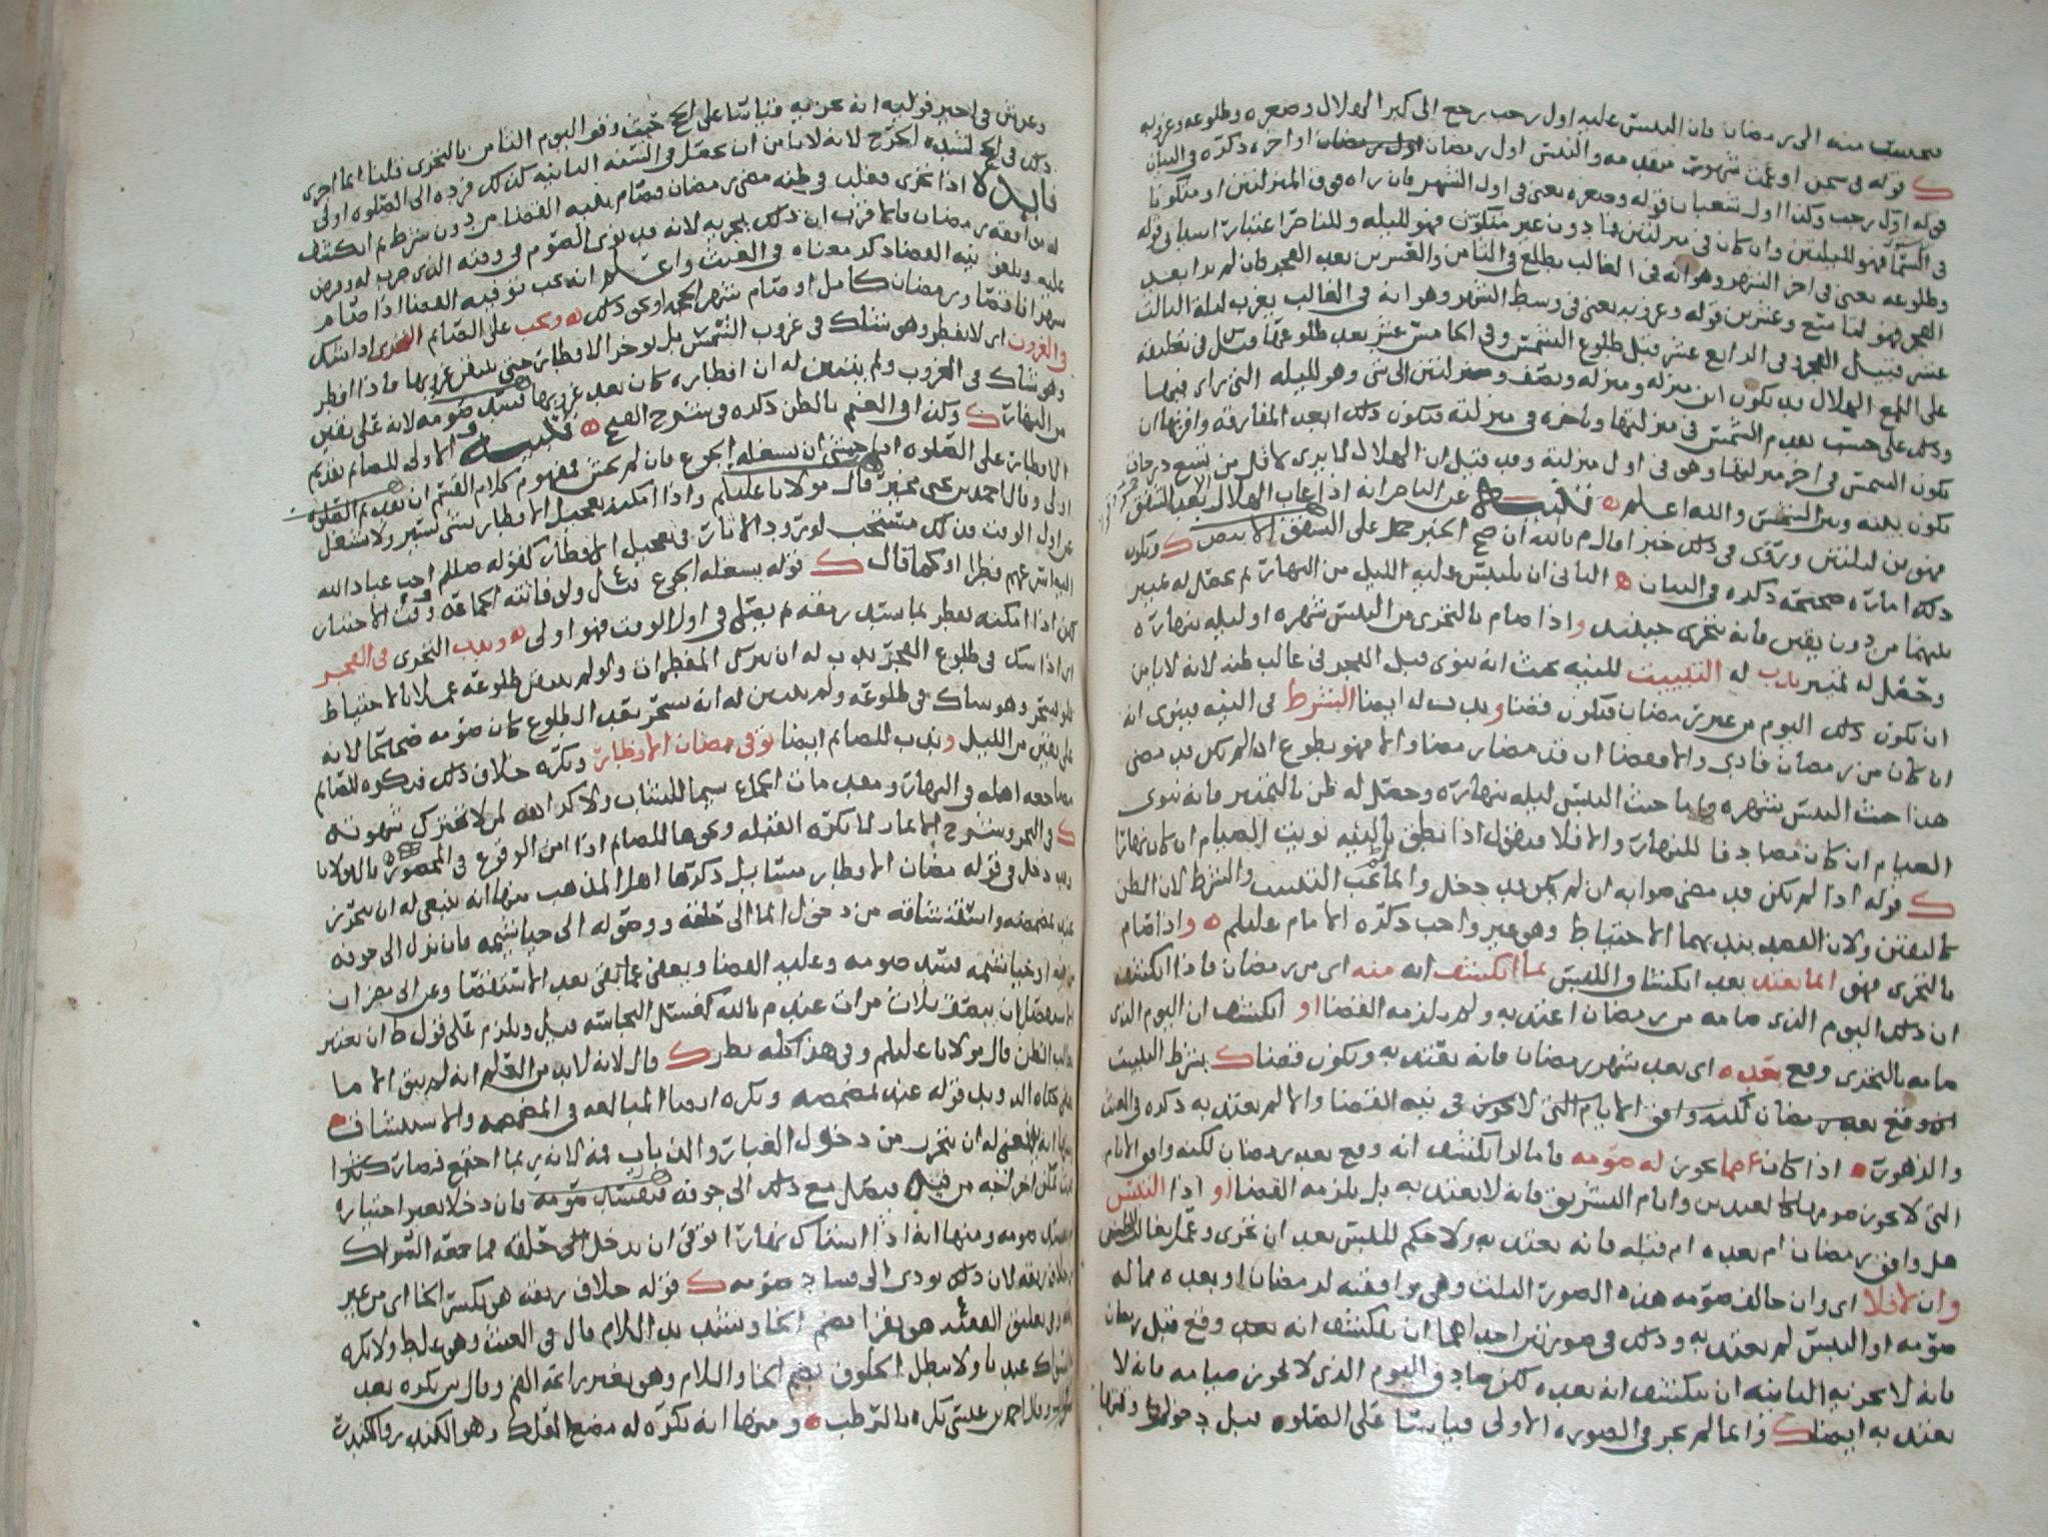 منه الى رمضان فان التبس عليه اول رجب رجع الى كبر الهلال وصغره وطلوعه وغروبه
ك قوله في سجن او عميت شهوره متقدمه والتبس اول رمضان او اخره ذكره في البيان
قوله اول رجب وكذا اول شعبان قوله وصغره يعني في اول الشهر فان راه في المنزلتين او متكونا
في السما فهو لليلتين وان كان في منزلتين فما دون غير متكون فهو لليله وللناصر اعتبارات قوله
وطلوعه يعني في اخر الشهر وهو انه في الغالب يطلع في الثامن والعشرين بعد الفجر فان لم ير ابعد
الفجر فهو لتاسع وعشرين قوله وغروبه يعني في وسط الشهر وهو انه في الغالب يغرب ليله الثالث
عشر قبيل الفجر وفي الرابع عشر قبل طلوع الشمس وفي الخامس عشر بعد طلوعها قيل في تعليقه
على اللمع الهلال قد يكون ابن منزله ومنزله ونصف ومنزلتين الى شي وهو لليله التي تراى فيها
وذلك على حسب تقدم الشمس في منزلتها وتاخره في منزلته فيكون ذلك ابعد المفارقه واقربها ان
تكون الشمس في اخر منزلتها وهو في اول منزلته وقد قيل ان الهلال لا يرى لاقل من تسع درجات
تكون بينه وبين الشمس والله اعلم ه تنبيه عن الناصر انه اذا غاب الهلال بعد الشفق
فهو من ليلتين وروى في ذلك خبرا قال م بالله ان صح الخبر حمل على الشفق الابيض ك ويكون
ذلك اماره صحيحه ذكره في البيان ه الثاني ان يلتبس عليه الليل من النهار ثم يحصل له تمييز
بينهما من دون يقين فانه يتحرى حينئذ واذا صام بالتحري من التبس شهره او ليله بنهاره
وحصل له تمييز ندب له التبييت للنيه بحيث انه ينوي قبل الفجر في غالب ظنه لانه لا يامن
ان يكون ذلك اليوم من غير رمضان فيكون قضا وندب له ايضا الشرط في النيه فينوي انه
ان كان من رمضان فادى والا فقضا ان قد مضا رمضان والا فهو تطوع اذا لم يكن قد مضى
هذا حيث التبس شهره واما حيث التبس ليله بنهاره وحصل له ظن بالتمييز فانه ينوي
الصيام ان كان مصادفا للنهار والا فلا فيقول اذا نطق بالنيه نويت الصيام ان كان نهارا
ك قوله اذا لم يكن قد مضى صوابه ان لم يكن قد دخل وانما يجب التبييت والشرط لان الظن
كاليقين ولان القصد بهما الاحتياط وهو غير واجب ذكره الامام عليلم ه واذا صام
بالتحري فهو انما يعتد بعد انكشاف اللبس بما انكشف انه منه اي من رمضان فاذا انكشف
ان ذلك اليوم الذي صامه من رمضان اعتد به ولم يلزمه القضا او انكشف ان اليوم الذي
صامه بالتحري وقع بعده اي بعد شهر رمضان فانه يعتد به ويكون قضا ك بشرط التبييت
ان وقع بعد رمضان لكنه وافق الايام التي لا يجوز في نيه القضا والا لم يعتد به ذكره في الغيث
والزهور ه اذا كان مما يجوز له صومه فاما لو انكشف انه وقع بعد رمضان لكنه وافق الايام
التي لا يجوز صومها كالعيدين وايام التشريق فانه لا يعتد به بل يلزمه القضا او اذا التبس
هل وافق رمضان ام بعده ام قبله فانه يعتد به ولا حكم للبس بعد ان تحرى وعمل بغالب الظن
وان لا فلا اي وان خالف صومه هذه الصور الثلث وهي موافقته لرمضان او بعده مما له
صومه او التبس لم يعتد به وذلك في صورتين احداهما ان ينكشف انه بعد وقع قبل رمضان
فانه لا يجزيه الثانيه ان ينكشف انه بعده لكن صادف اليوم الذي لا يجوز صيامه فانه لا
يعتد به ايضا ك وانما لم يجز في الصوره الاولى قياسا على الصلوه قبل دخول وقتها
وعرش في اخير قوليه انه يجزيه قياسا على الحج حيث وقفوا اليوم الثامن بالتحري قلنا انما اجزى
ذلك في الحج لشده الحرج لانه لا يامن ان يحصل في السنه الثانيه كذلك فرده الى الصلوه اولى
فايده اذا تحرى فغلب في ظنه مضي رمضان فصام بنيه القضا من دون شرط ثم انكشف
له موافقه رمضان فالاقرب ان ذلك يجزيه لانه قد نوى الصوم في وقته الذي ضرب له وفرض
عليه ويلغو نيه القضا ذكر معناه في الغيث واعلم انه يجب توفيه القضا اذا صام
شهرا ناقصا ورمضان كامل او صام شهر الحجه او نحو ذلك ه ويجب على الصائم التحري اذا شك
في الغروب اي لا يفطر وهو شاك في غروب الشمس بل يوخر الافطار حتى يتيقن غروبها فاذا افطر
وهو شاك في الغروب ولم يتبين له ان افطاره كان بعد غروبها فسد صومه لانه على يقين
من النهار ك وكذا في الغيم بالظن ذكره في شرح الفتح ه تنبيه الاولى للصائم تقديم
الافطار على الصلوه اذا خشي ان يشغله الجوع فان لم يخش فمفهوم كلام القسم ان تقديم الصلوه
اولى وقال احمد بن عيسى مخير قال مولانا عليلم واذا امكنه تعجيل الافطار بشي يسير ولا يشتغل
عن اول الوقت فذلك مستحب لورود الاثار في تعجيل الافطار كقوله صلعم احب عباد الله
اليه اسرعهم فطرا او كما قال ك قوله يشغله الجوع يقال ولو فاتته الجماعه وقت الاختيار
لكن اذا امكنه يفطر بما يسد رمقه ثم يصلي في اول الوقت فهو اولى ه وندب التحري في الفجر
اي اذا شك في طلوع الفجر ندب له ان يترك المفطرات ولو لم يتيقن طلوعه عملا بالاحتياط
فلو تسحر وهو شاك في طلوعه ولم يتبين له انه تسحر بعد الطلوع كان صومه صحيحا لانه
على يقين من الليل وندب للصائم ايضا توقي مضان الافطار ويكره خلاف ذلك فيكره للصائم
مضاجعه اهله في النهار ومقدمات الجماع سيما للشاب ولا كراهه لمن لا تتحرك شهوته
ك في البحر وشرح الاثمار لا تكره القبله ونحوها للصائم اذا امن الوقوع في المحضور
وقد دخل في قوله مضان الافطار مسايل ذكرها اهل المذهب منها انه ينبغي له ان يتحرز
عند مضمضته واستنشاقه من دخول الما الى حلقه ووصوله الى خياشيمه فان نزل الى جوفه
من فيه او خياشيمه فسد صومه وعليه القضا ويعفى عما بقي بعد الاستقصا وعن ابي مضر ان
الاستقصا ان يبصق ثلاث مرات عند م بالله كغسل النجاسه قيل ويلزم على قول ط ان يعتبر
غالب الظن قال مولانا عليلم وفي هذا كله نظر ك قال لانه لا بد من العلم انه لم يبق الا ما
قوله عند مضمضه ويكره ايضا المبالغه في المضمضه والاستنشاق ه
ومنها انه ينبغي له ان يتحرز من دخول الغبار والذباب فمه لانه ربما اجتمع فصار كثيرا
فيصل مع ذلك الى جوفه فيفسد صومه فان دخلا بغير اختياره
لم يفسد صومه ومنها انه اذا استاك نهارا توقى ان يدخل الى حلقه مما جمعه السواك
من خلاف ريقه لان ذلك يودي الى فساد صومه ك قوله خلاف ريقه هو بكسر الخا اي من غير
ريقه وفي تعليق الفقيه هو يقرا بضم الخا وتشديد اللام قال في الغيث وهو غلط ولا يكره
السواك عندنا ولا يبطل الخلوف بضم الخا واللام وهو تغير رائحه الفم وقال ش يكره بعد
الزوال وقال احمد بن عيسى يكره بالرطب ه ومنها انه يكره له مضغ العلك وهو الكندر والكندرة